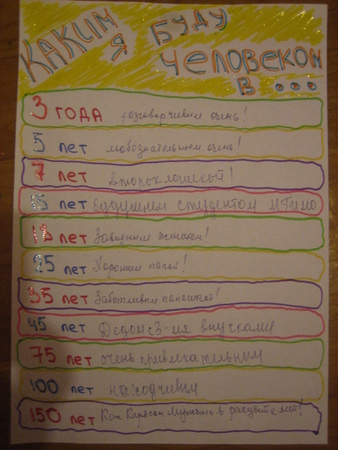 КАКИМ Я БУДУ
ЧЕЛОВЕКОМ
В ...
3 ГОДА разговорчивым очень!
5 лет любознательным очень!
7 лет второклашкой!
15 лет Будущем студентом МГИМО
18 лет Завидным женихом!
25 лет Хорошим папой!
35 лет Заботливым папочкой!
45 лет Дедом с 3-мя внучками
75 лет очень привлекательным
100 лет находчивым
150 лет Как Карлсон Мужчина в расцвете лет!